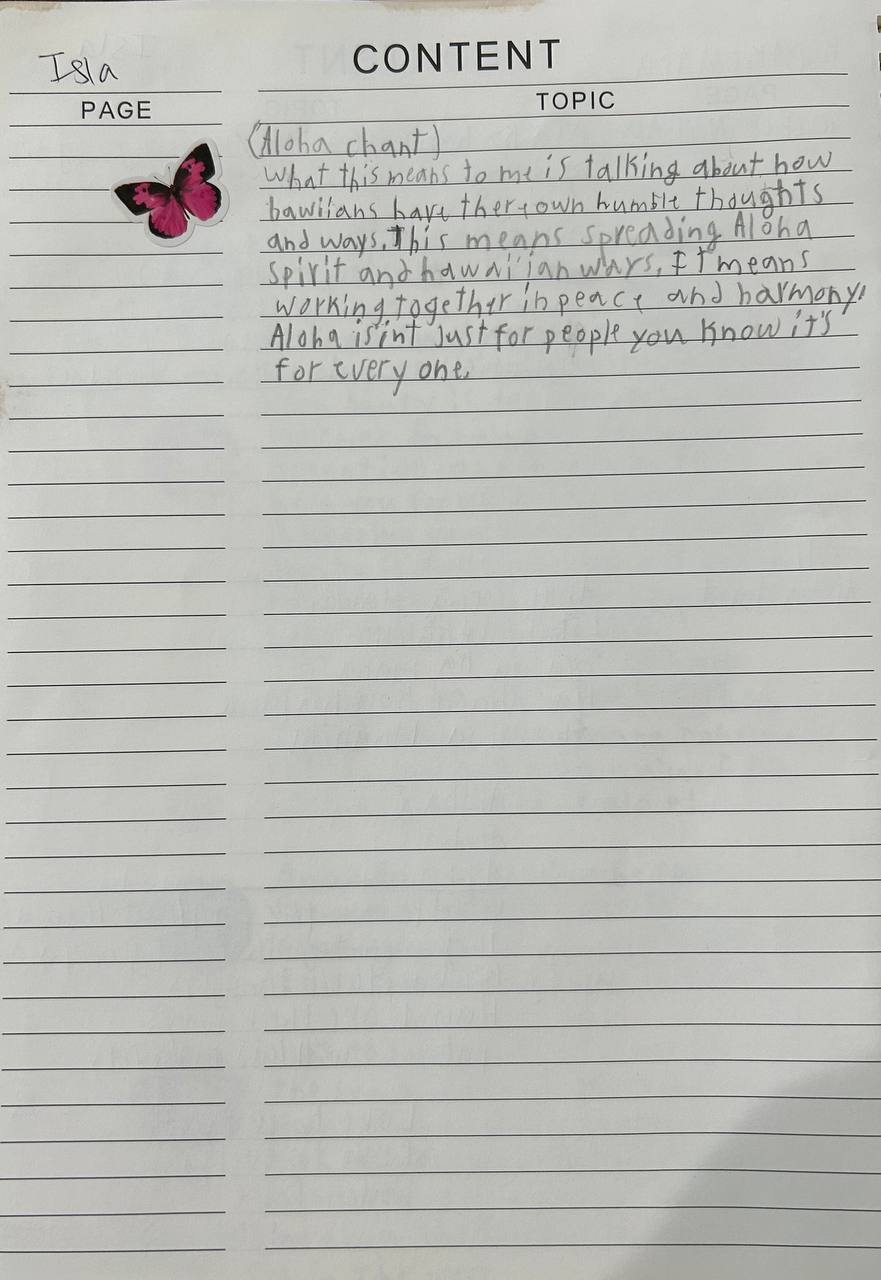 Isla
CONTENT
PAGE
TOPIC
(Aloha chant)
What this means to me is talking about how
hawiians have there own humble thoughts
and ways. This means spreading Aloha
spirit and hawaiian ways. It means
working together in peace and harmony.
Aloha is'int just for people you know it's
for every one.